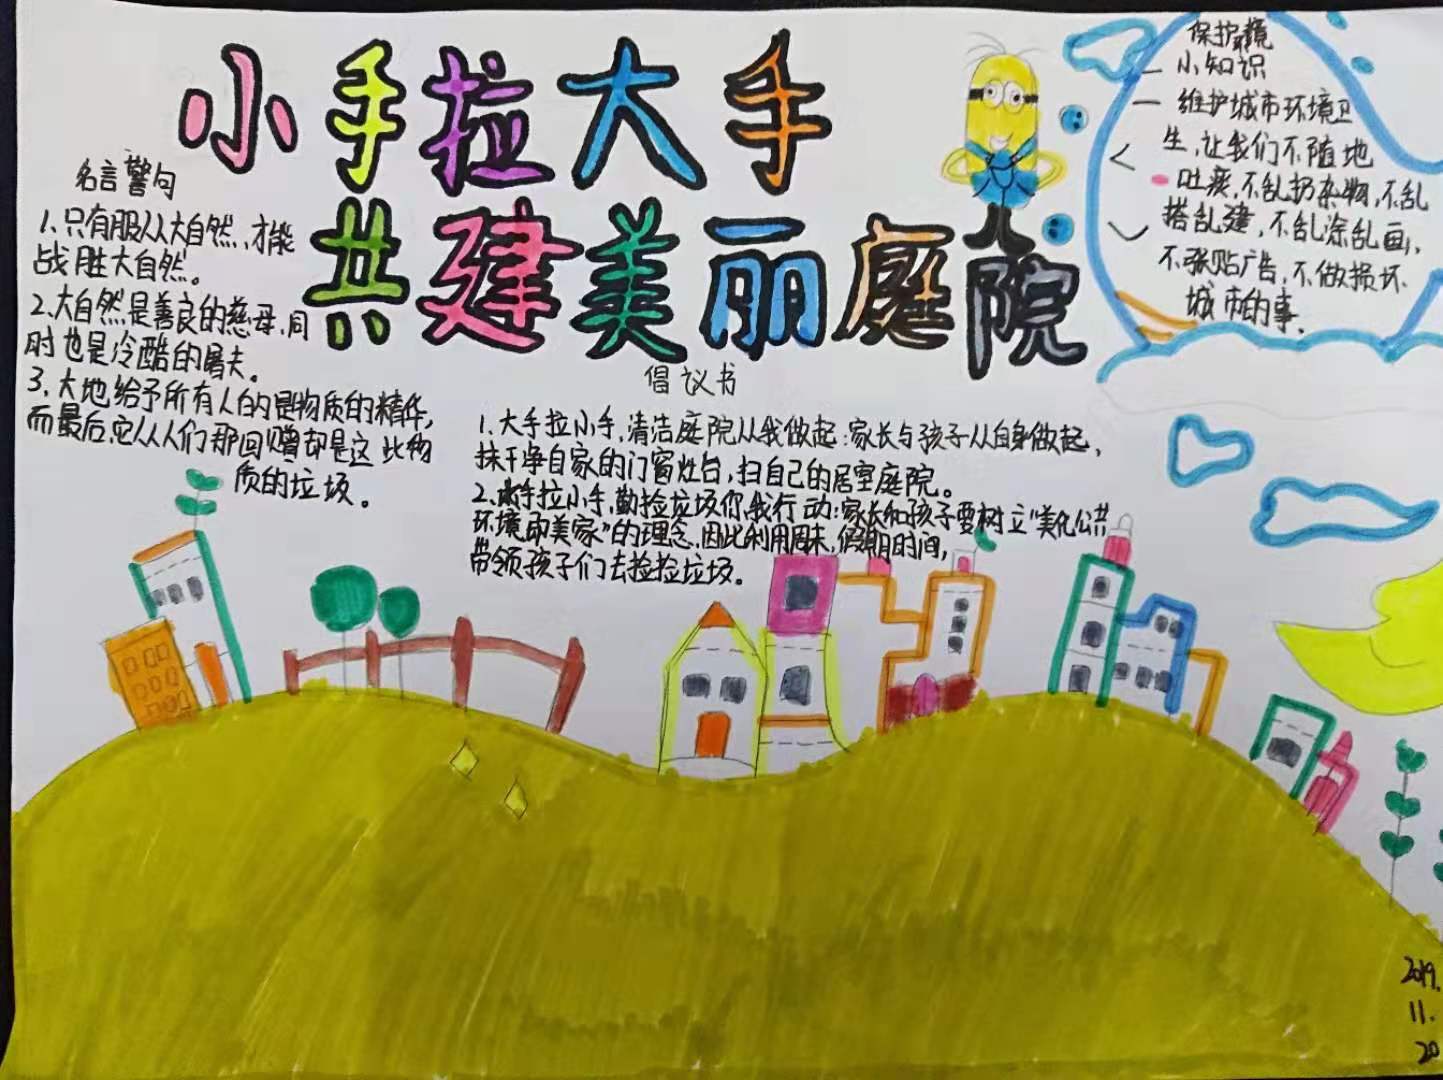 小手拉大手
共建美丽庭院
名言警句
1、只有服从大自然,才能
战胜大自然。
2、大自然是善良的慈母,同
时也是冷酷的屠夫。
3、大地给予所有人的是物质的精华,
而最后,它从人们那回赠却是这些物
质的垃圾。
倡议书
1、大手拉小手,清洁庭院从我做起:家长与孩子从自身做起,
抹干净自家的门窗灶台,扫自己的居室庭院。
2、大手拉小手,勤捡垃圾你我行动:家长和孩子要树立"美化公共
环境即美家"的理念,因此利用周末,假期时间,
带领孩子们去捡捡垃圾。
保护环境
小知识
维护城市环境卫
生,让我们不随地
吐痰,不乱扔杂物,不乱
搭乱建,不乱涂乱画,
不张贴广告,不做损坏
城市的事.
2019.
11.
20